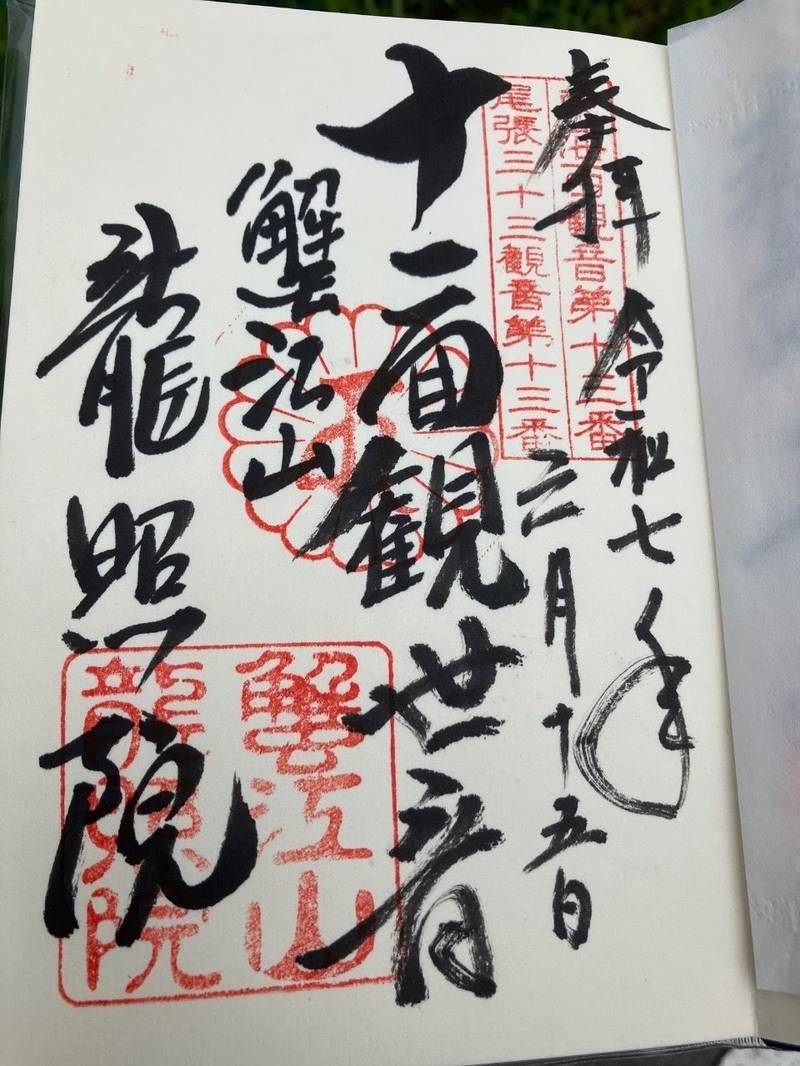 奉拝 令和七年
観音第十三番
尾張三十三観音第十三番
六月十五日
十一面観世音
蟹江山
龍照院
蟹江山
龍照院